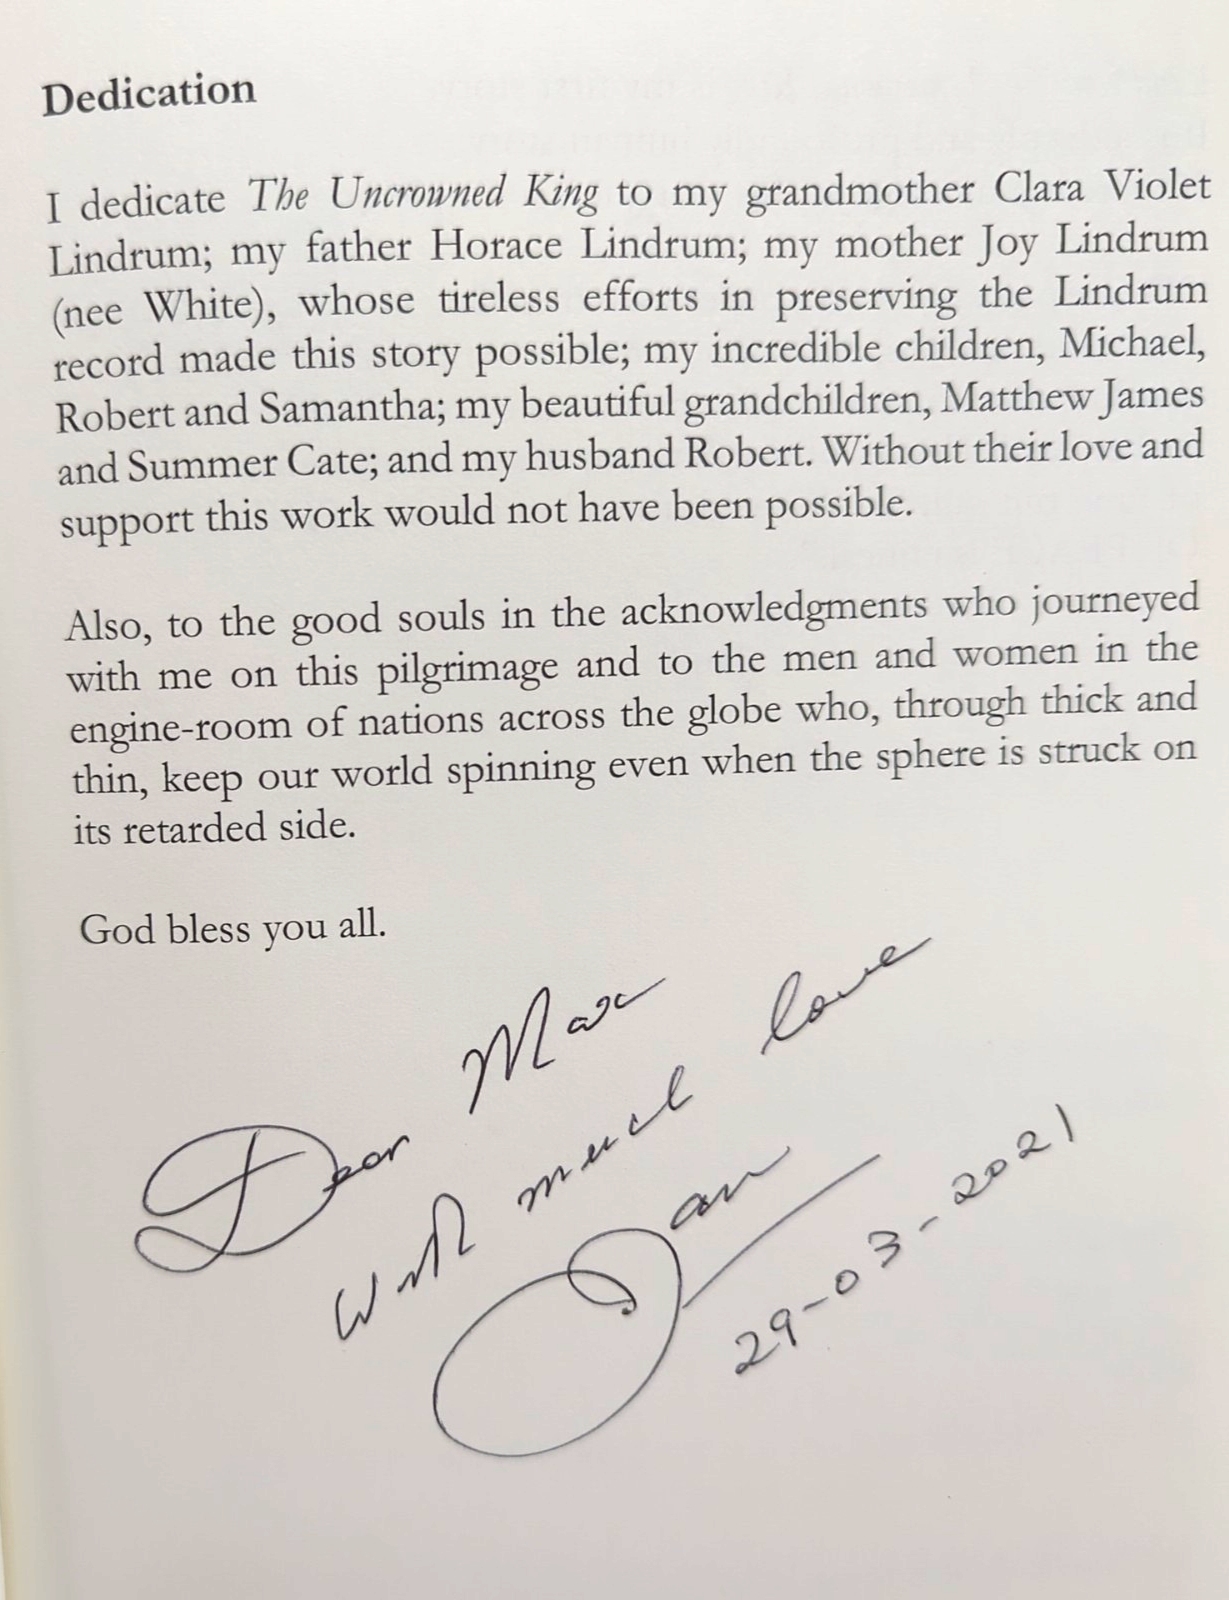 Dedication
I dedicate The Uncrowned King to my grandmother Clara Violet
Lindrum; my father Horace Lindrum; my mother Joy Lindrum
(nee White), whose tireless efforts in preserving the Lindrum
record made this story possible; my incredible children, Michael,
Robert and Samantha; my beautiful grandchildren, Matthew James
and Summer Cate; and my husband Robert. Without their love and
support this work would not have been possible.
Also, to the good souls in the acknowledgments who journeyed
with me on this pilgrimage and to the men and women in the
engine-room of nations across the globe who, through thick and
thin, keep our world spinning even when the sphere is struck on
its retarded side.
God bless you all.
Dear Max
With much love
Jan
29-03-2021